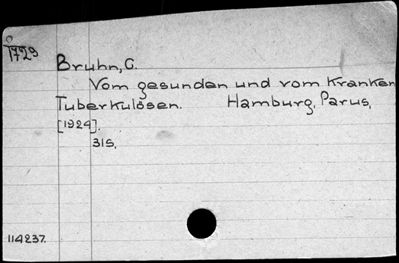 1729
Bruhn, C.
Vom gesunden und vom Kranken
Tuberkulösen. Hamburg, Parus,
[1924].
31S.
114237.